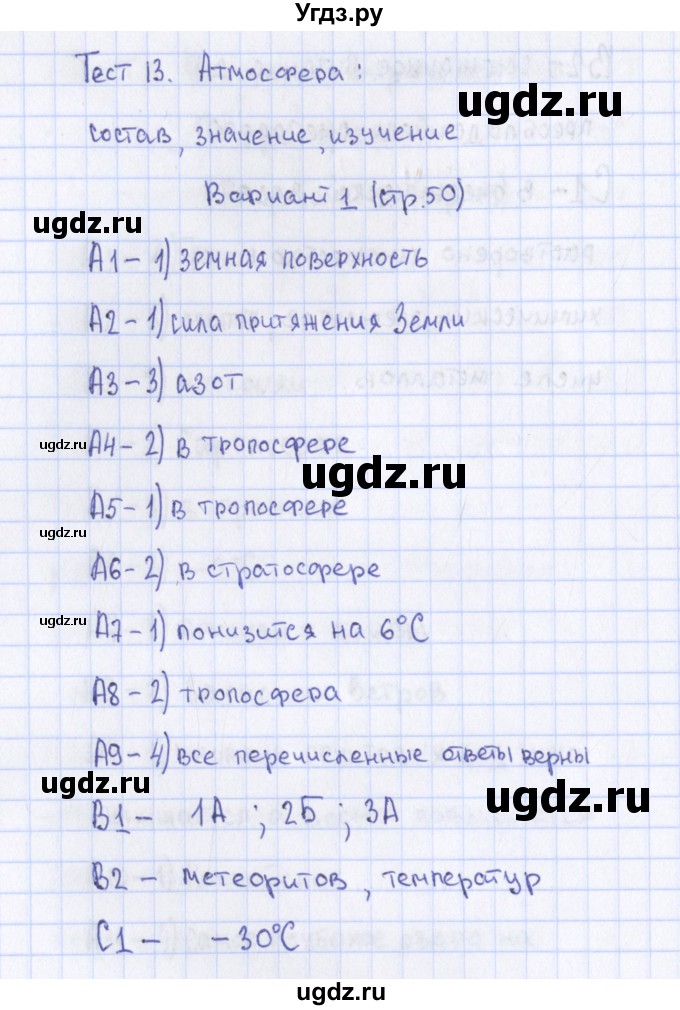 Угдз.ру
Тест 13. Атмосфера:
ugdz.ru
состав, значение, изучение
Вариант 1 (стр.50)
ugdz.ru
А1 - 1) земная поверхность
А2 - 1) сила притяжения Земли
А3 - 3) азот
ugdz.ru
А4 - 2) в тропосфере
ugdz.ru
А5 - 1) в тропосфере
ugdz.ru
А6 - 2) в стратосфере
ugdz.ru
А7 - 1) понизится на 6°С
А8 - 2) тропосфера
А9 - 4) все перечисленные ответы верны
ugdz.ru
ugdz.ru
В1 - 1А; 2Б; 3А
В2 - метеоритов, температур
С1 - -30°С
ugdz.ru